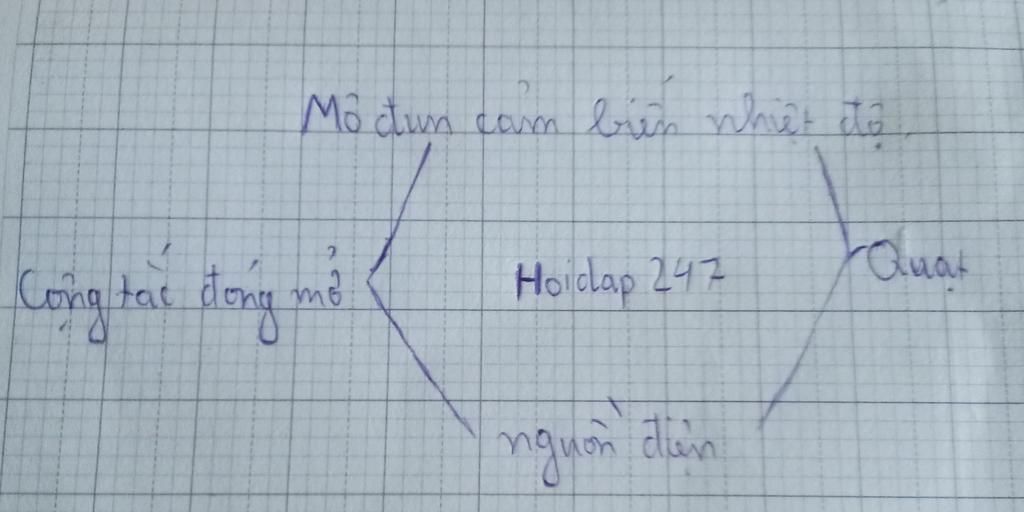 Mô đun cảm biến nhiệt độ
Công tắc đóng mở
Hoidap 247
Quạt
nguồn điện